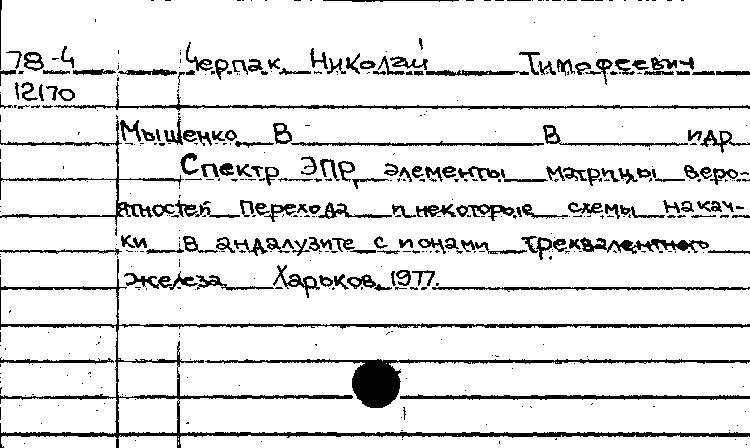 78-4 Черпак, Николай Тимофеевич
12170
Мышенко В В и др
Спектр ЭПР, элементы матрицы веро-
ятностей перехода и некоторые схемы накач-
ки в андалузите с ионами трехвалентного
железа Харьков, 1977.